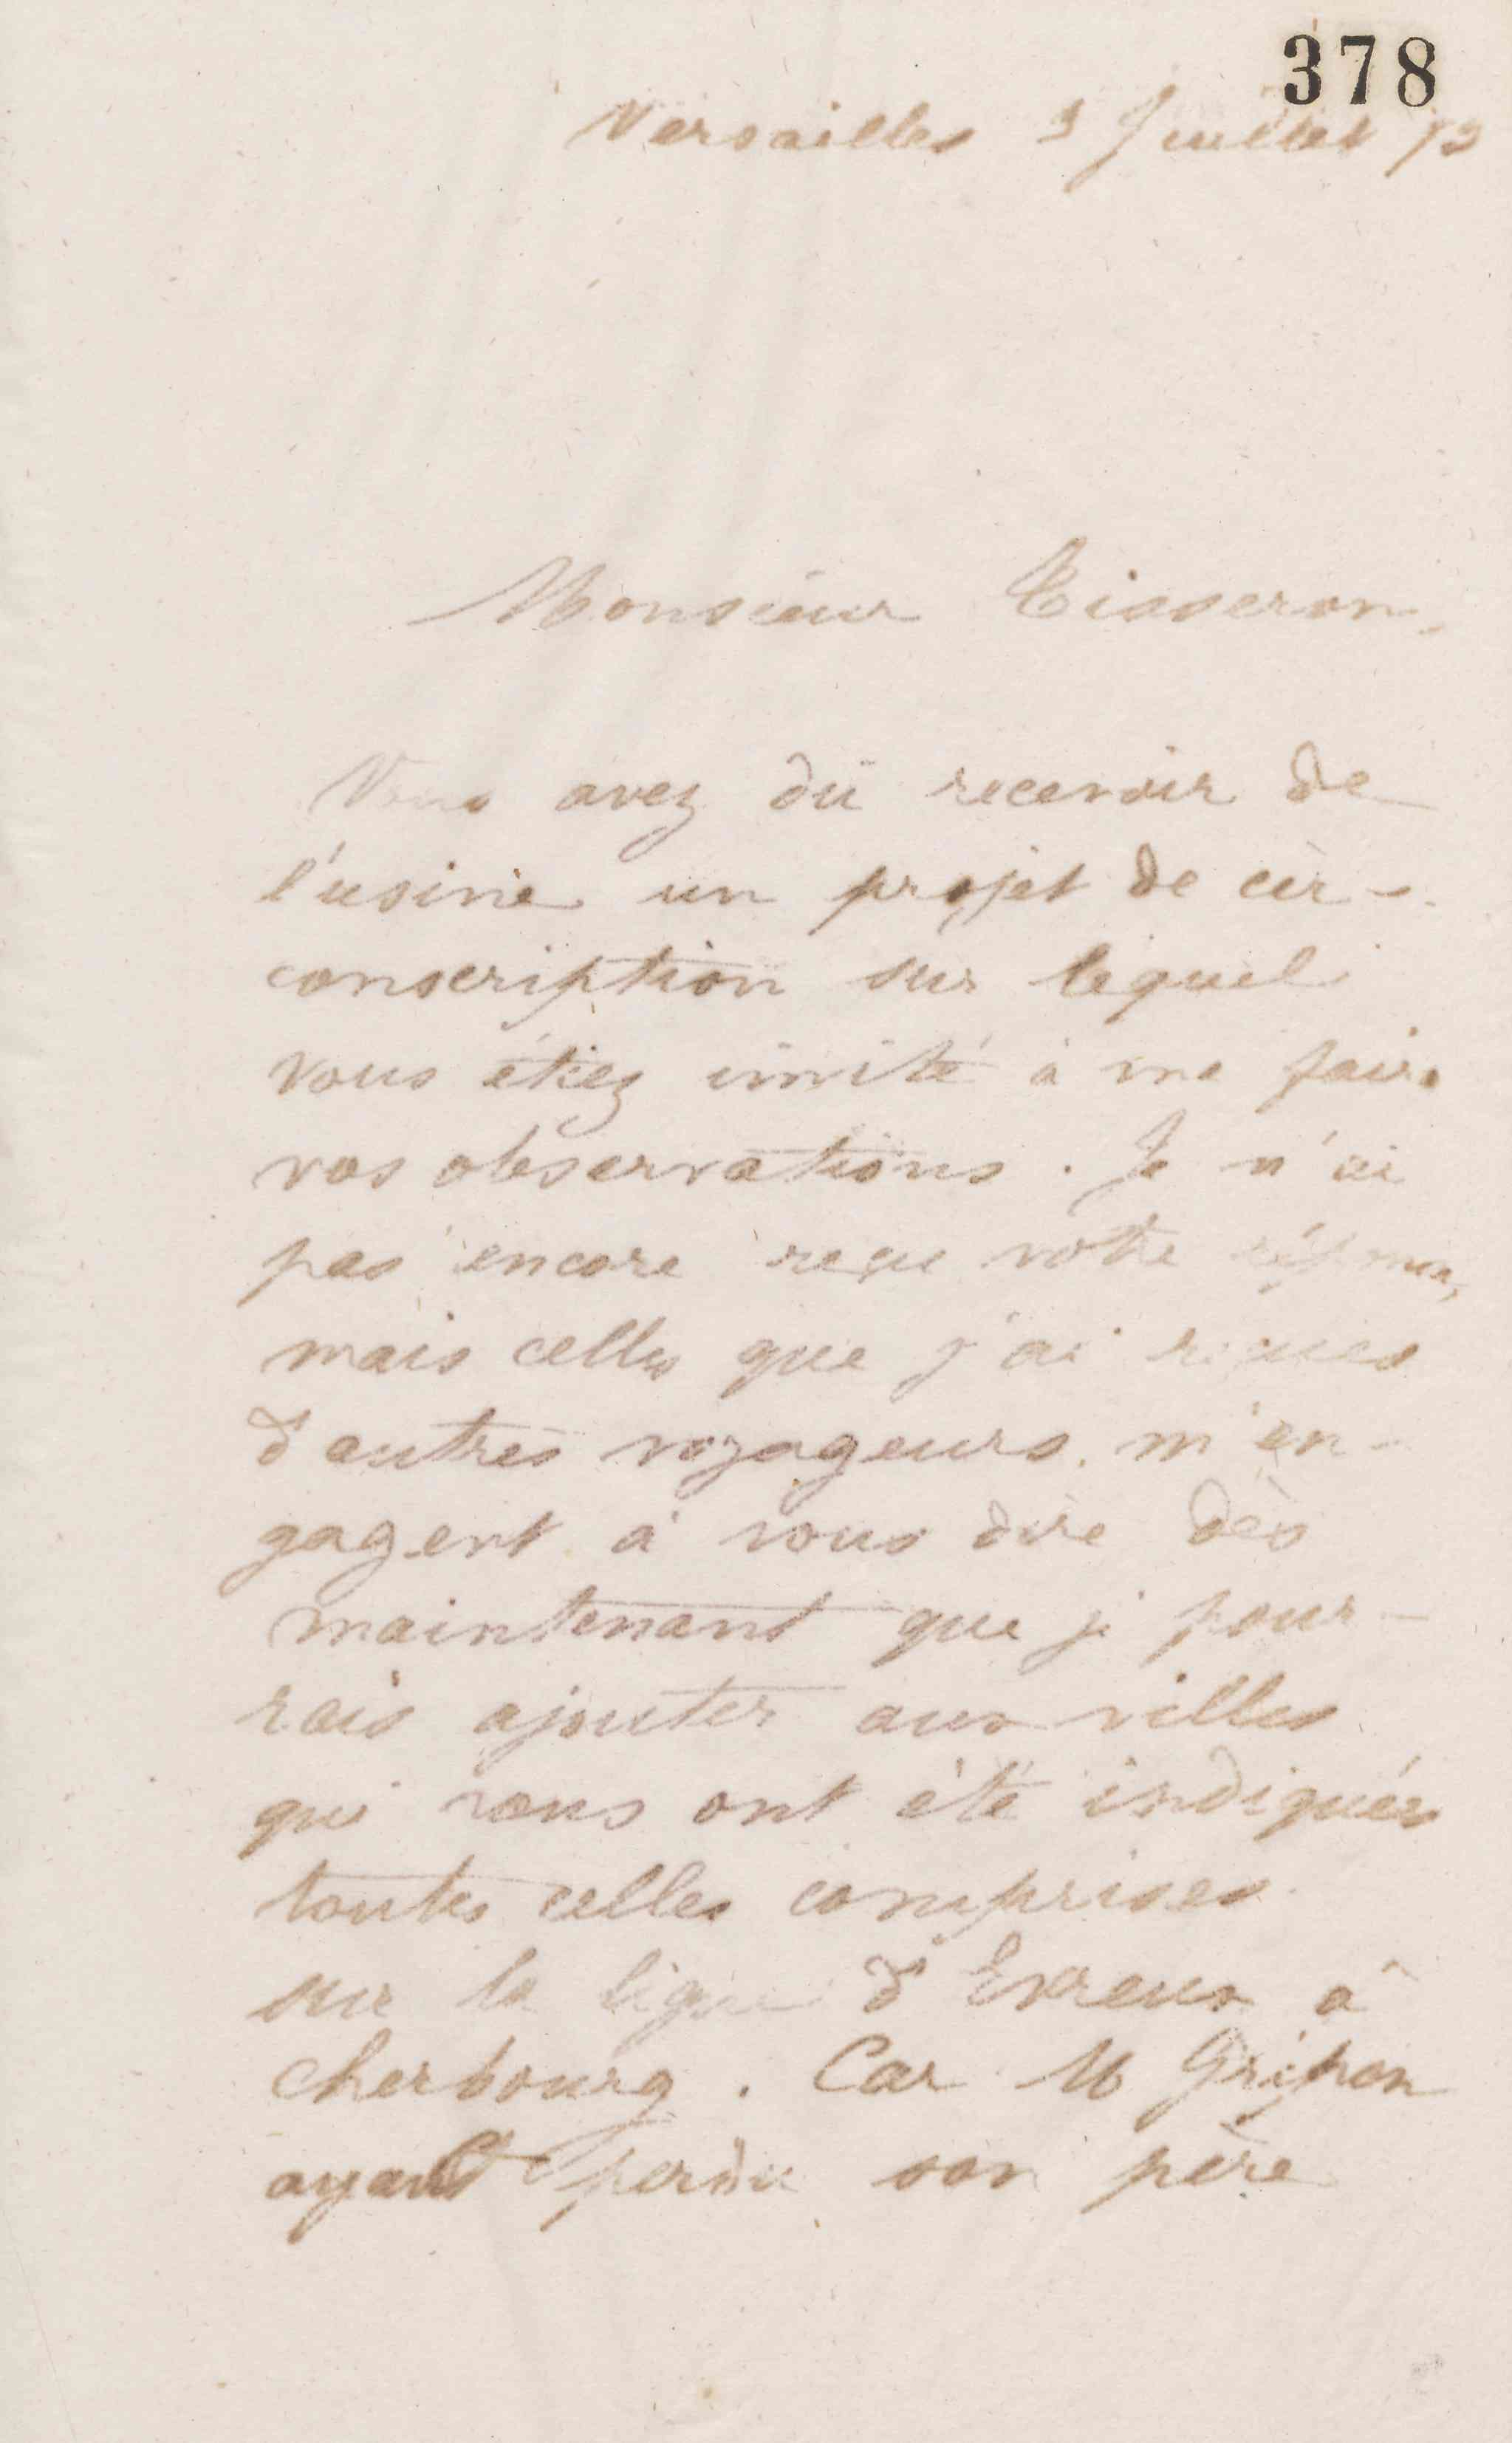 378
Versailles 3 Juillet 73
Monsieur Tisseron,
Vous avez dû recevoir de
l'usine un projet de cir-
conscription sur lequel
vous étiez invité à me faire
vos observations. Je n'ai
pas encore reçu votre réponse,
mais celles que j'ai reçues
d'autres voyageurs m'en-
gagent à vous dire dès
maintenant que je pour-
rais ajouter aux villes
qui vous ont été indiquées
toutes celles comprises
sur la ligne d'Evreux à
Cherbourg. Car M Gripon
ayant perdu son père